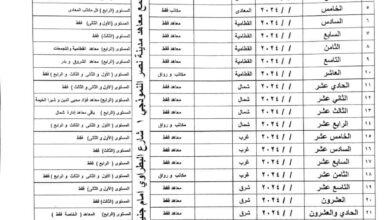 ٥ الخامس / / ٢٠٢٤ المعادى مكاتب فقط المستوى (الرابع) كل مكاتب المعادى
٦ السادس / / ٢٠٢٤ القطامية معاهد فقط المستوى (الأول و الثانى) فقط
٧ السابع / / ٢٠٢٤ القطامية معاهد فقط المستوى (الثالث) فقط
٨ الثامن / / ٢٠٢٤ القطامية معاهد فقط المستوى (الرابع) معاهد القطامية والتجمعات
٩ التاسع / / ٢٠٢٤ القطامية معاهد فقط المستوى (الرابع) معاهد الشروق و بدر
١٠ العاشر / / ٢٠٢٤ القطامية مكاتب و رواق المستوى (الأول و الثانى و الثالث و الرابع) فقط
١١ الحادي عشر / / ٢٠٢٤ شمال معاهد فقط المستوى (الأول و الثانى و الثالث) فقط
١٢ الثاني عشر / / ٢٠٢٤ شمال معاهد فقط المستوى (الرابع) معاهد فؤاد محيى الدين و شبرا الخيمة
١٣ الثالث عشر / / ٢٠٢٤ شمال معاهد فقط المستوى (الرابع) باقى معاهد إدارة شمال
١٤ الرابع عشر / / ٢٠٢٤ شمال مكاتب و رواق المستوى (الأول و الثانى و الثالث و الرابع) فقط
١٥ الخامس عشر / / ٢٠٢٤ غرب معاهد فقط المستوى (الأول و الثانى) فقط
١٦ السادس عشر / / ٢٠٢٤ غرب معاهد فقط المستوى (الثالث) فقط
١٧ السابع عشر / / ٢٠٢٤ غرب معاهد فقط المستوى (الرابع) فقط
١٨ الثامن عشر / / ٢٠٢٤ غرب مكاتب و رواق المستوى (الأول و الثانى و الثالث و الرابع) فقط
١٩ التاسع عشر / / ٢٠٢٤ شرق معاهد فقط المستوى (الأول و الثانى) فقط
٢٠ العشرون / / ٢٠٢٤ شرق معاهد فقط المستوى (الثالث) فقط
٢١ الحادي والعشرون / / ٢٠٢٤ شرق معاهد فقط المستوى (الرابع) معاهد فقط
معاهد مدينة نصر النموذجي
شارع البطراوي أمام